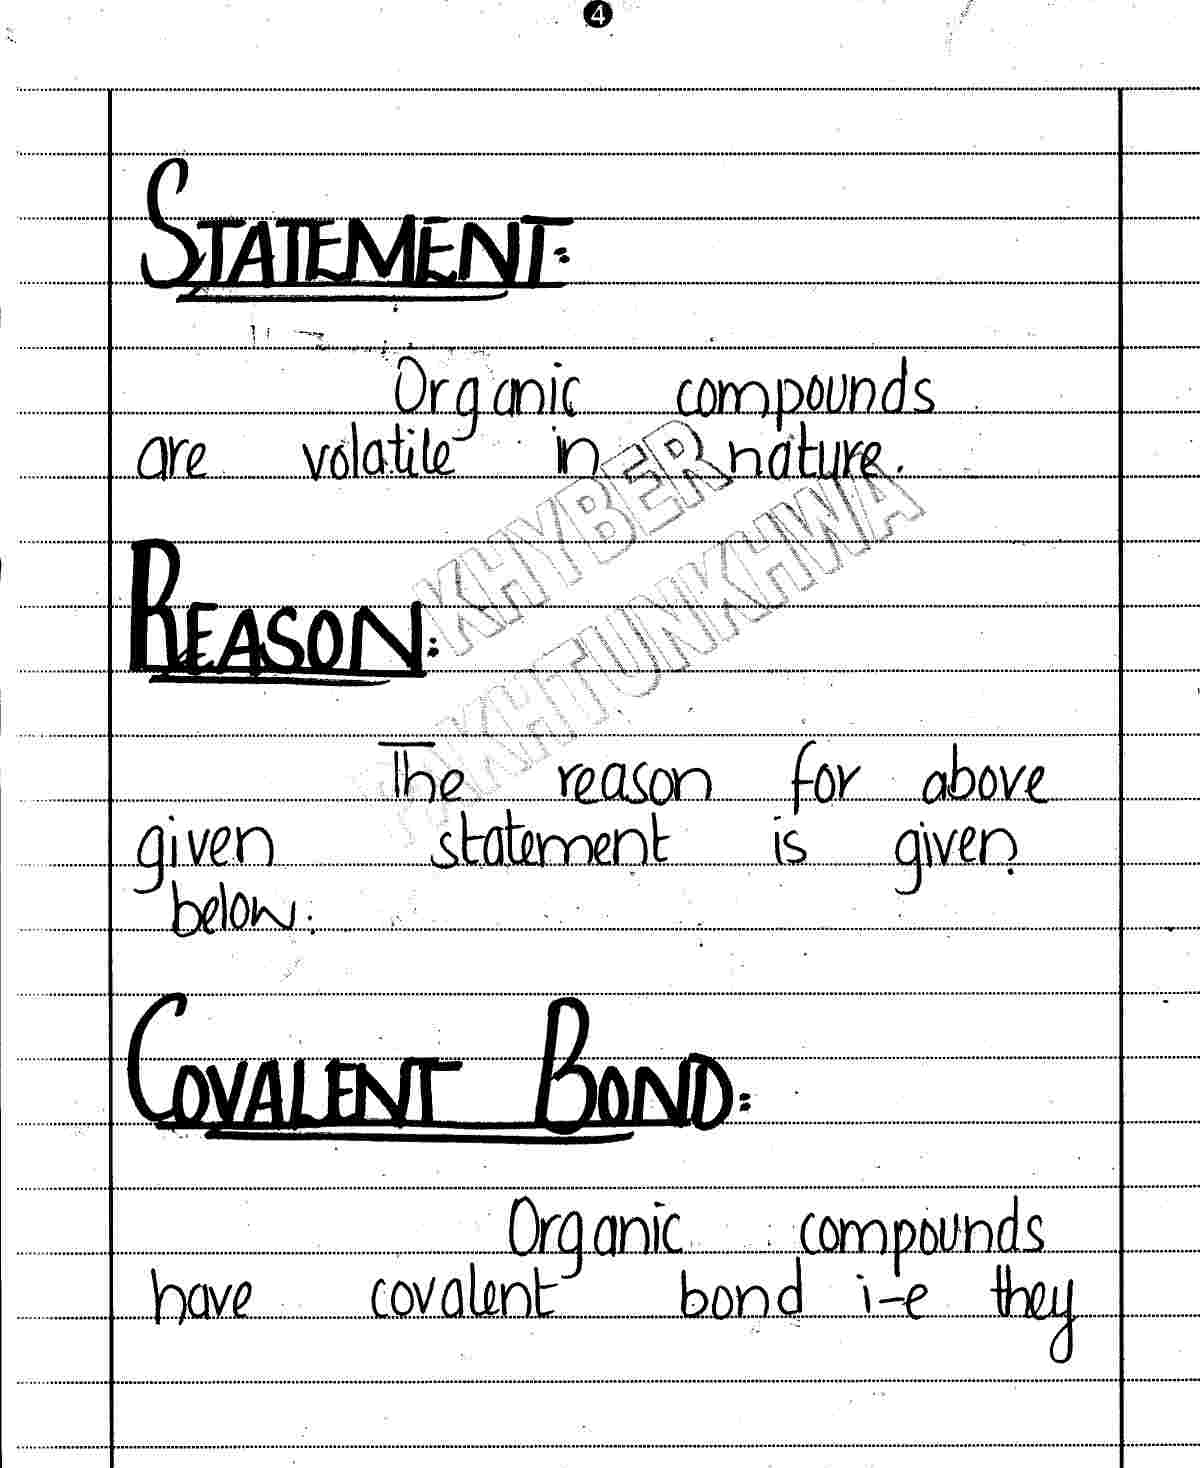 4
STATEMENT:
Organic compounds
are volatile in nature.
KHYBER
PAKHTUNKHWA
REASON:
The reason for above
given statement is given
below:
COVALENT BOND:
Organic compounds
have covalent bond i-e they